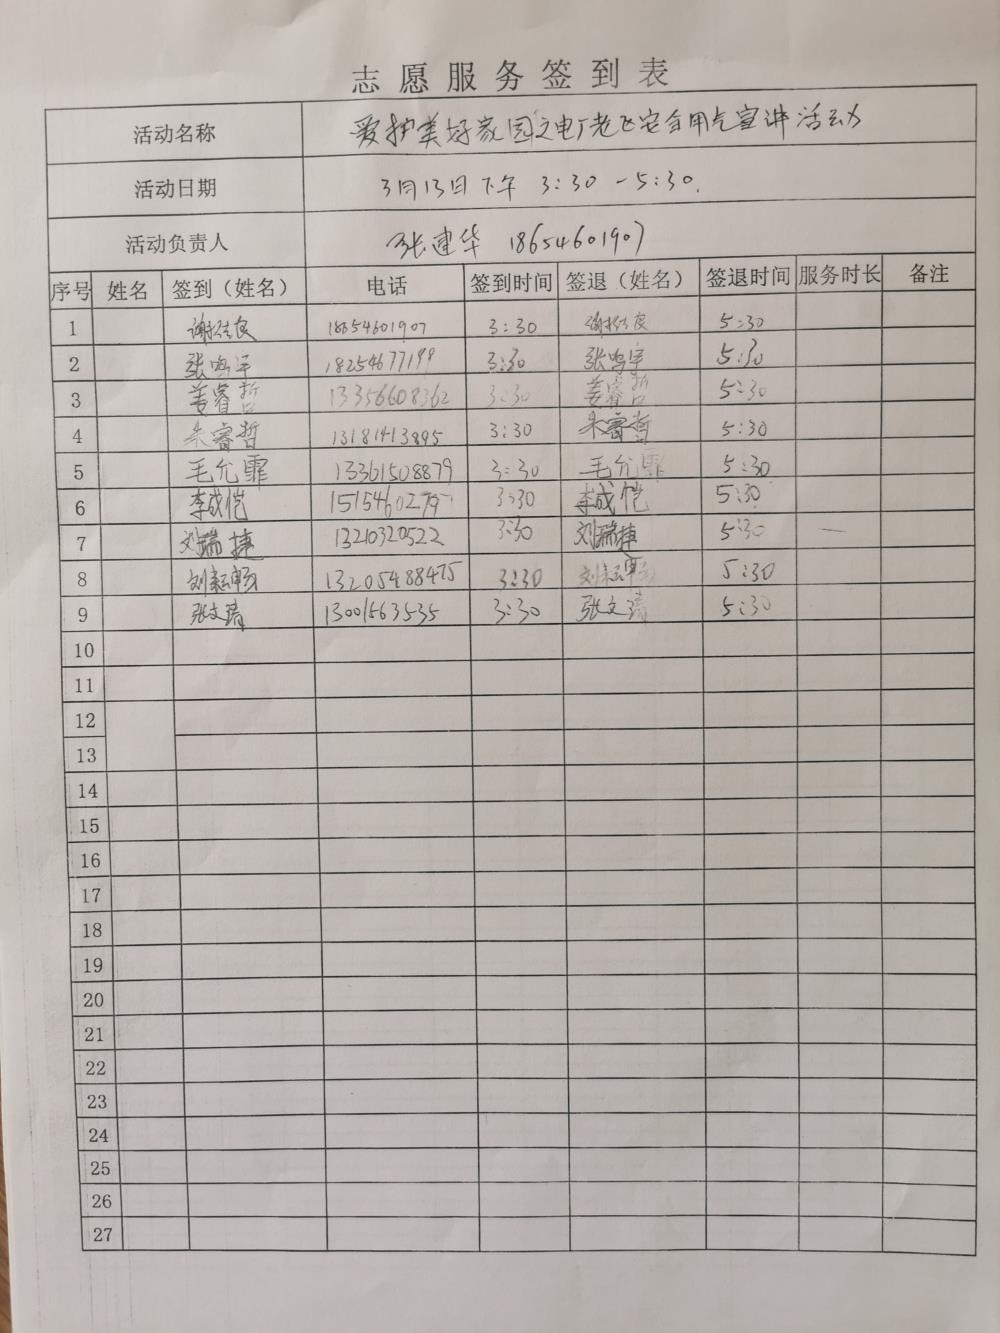 志愿服务签到表
活动名称 爱护美好家园之电厂老区安全用气宣讲活动
活动日期 3月13日下午 3:30-5:30.
活动负责人 张建华 18654601907
序号 姓名 签到（姓名） 电话 签到时间 签退（姓名） 签退时间 服务时长 备注
1 18654601907 3:30 5:30
2 张鸣宇 18254677199 3:30 张鸣宇 5:30
3 姜睿哲 13356608362 3:30 姜睿哲 5:30
4 朱睿哲 13181413895 3:30 朱睿哲 5:30
5 毛允霏 13361508879 3:30 毛允霏 5:30
6 李成恺 3:30 李成恺 5:30
7 刘瑞捷 13210320522 3:30 刘瑞捷 5:30 —
8 刘耘畅 13205488475 3:30 刘耘畅 5:30
9 张文清 13001563535 3:30 张文清 5:30
10
11
12
13
14
15
16
17
18
19
20
21
22
23
24
25
26
27